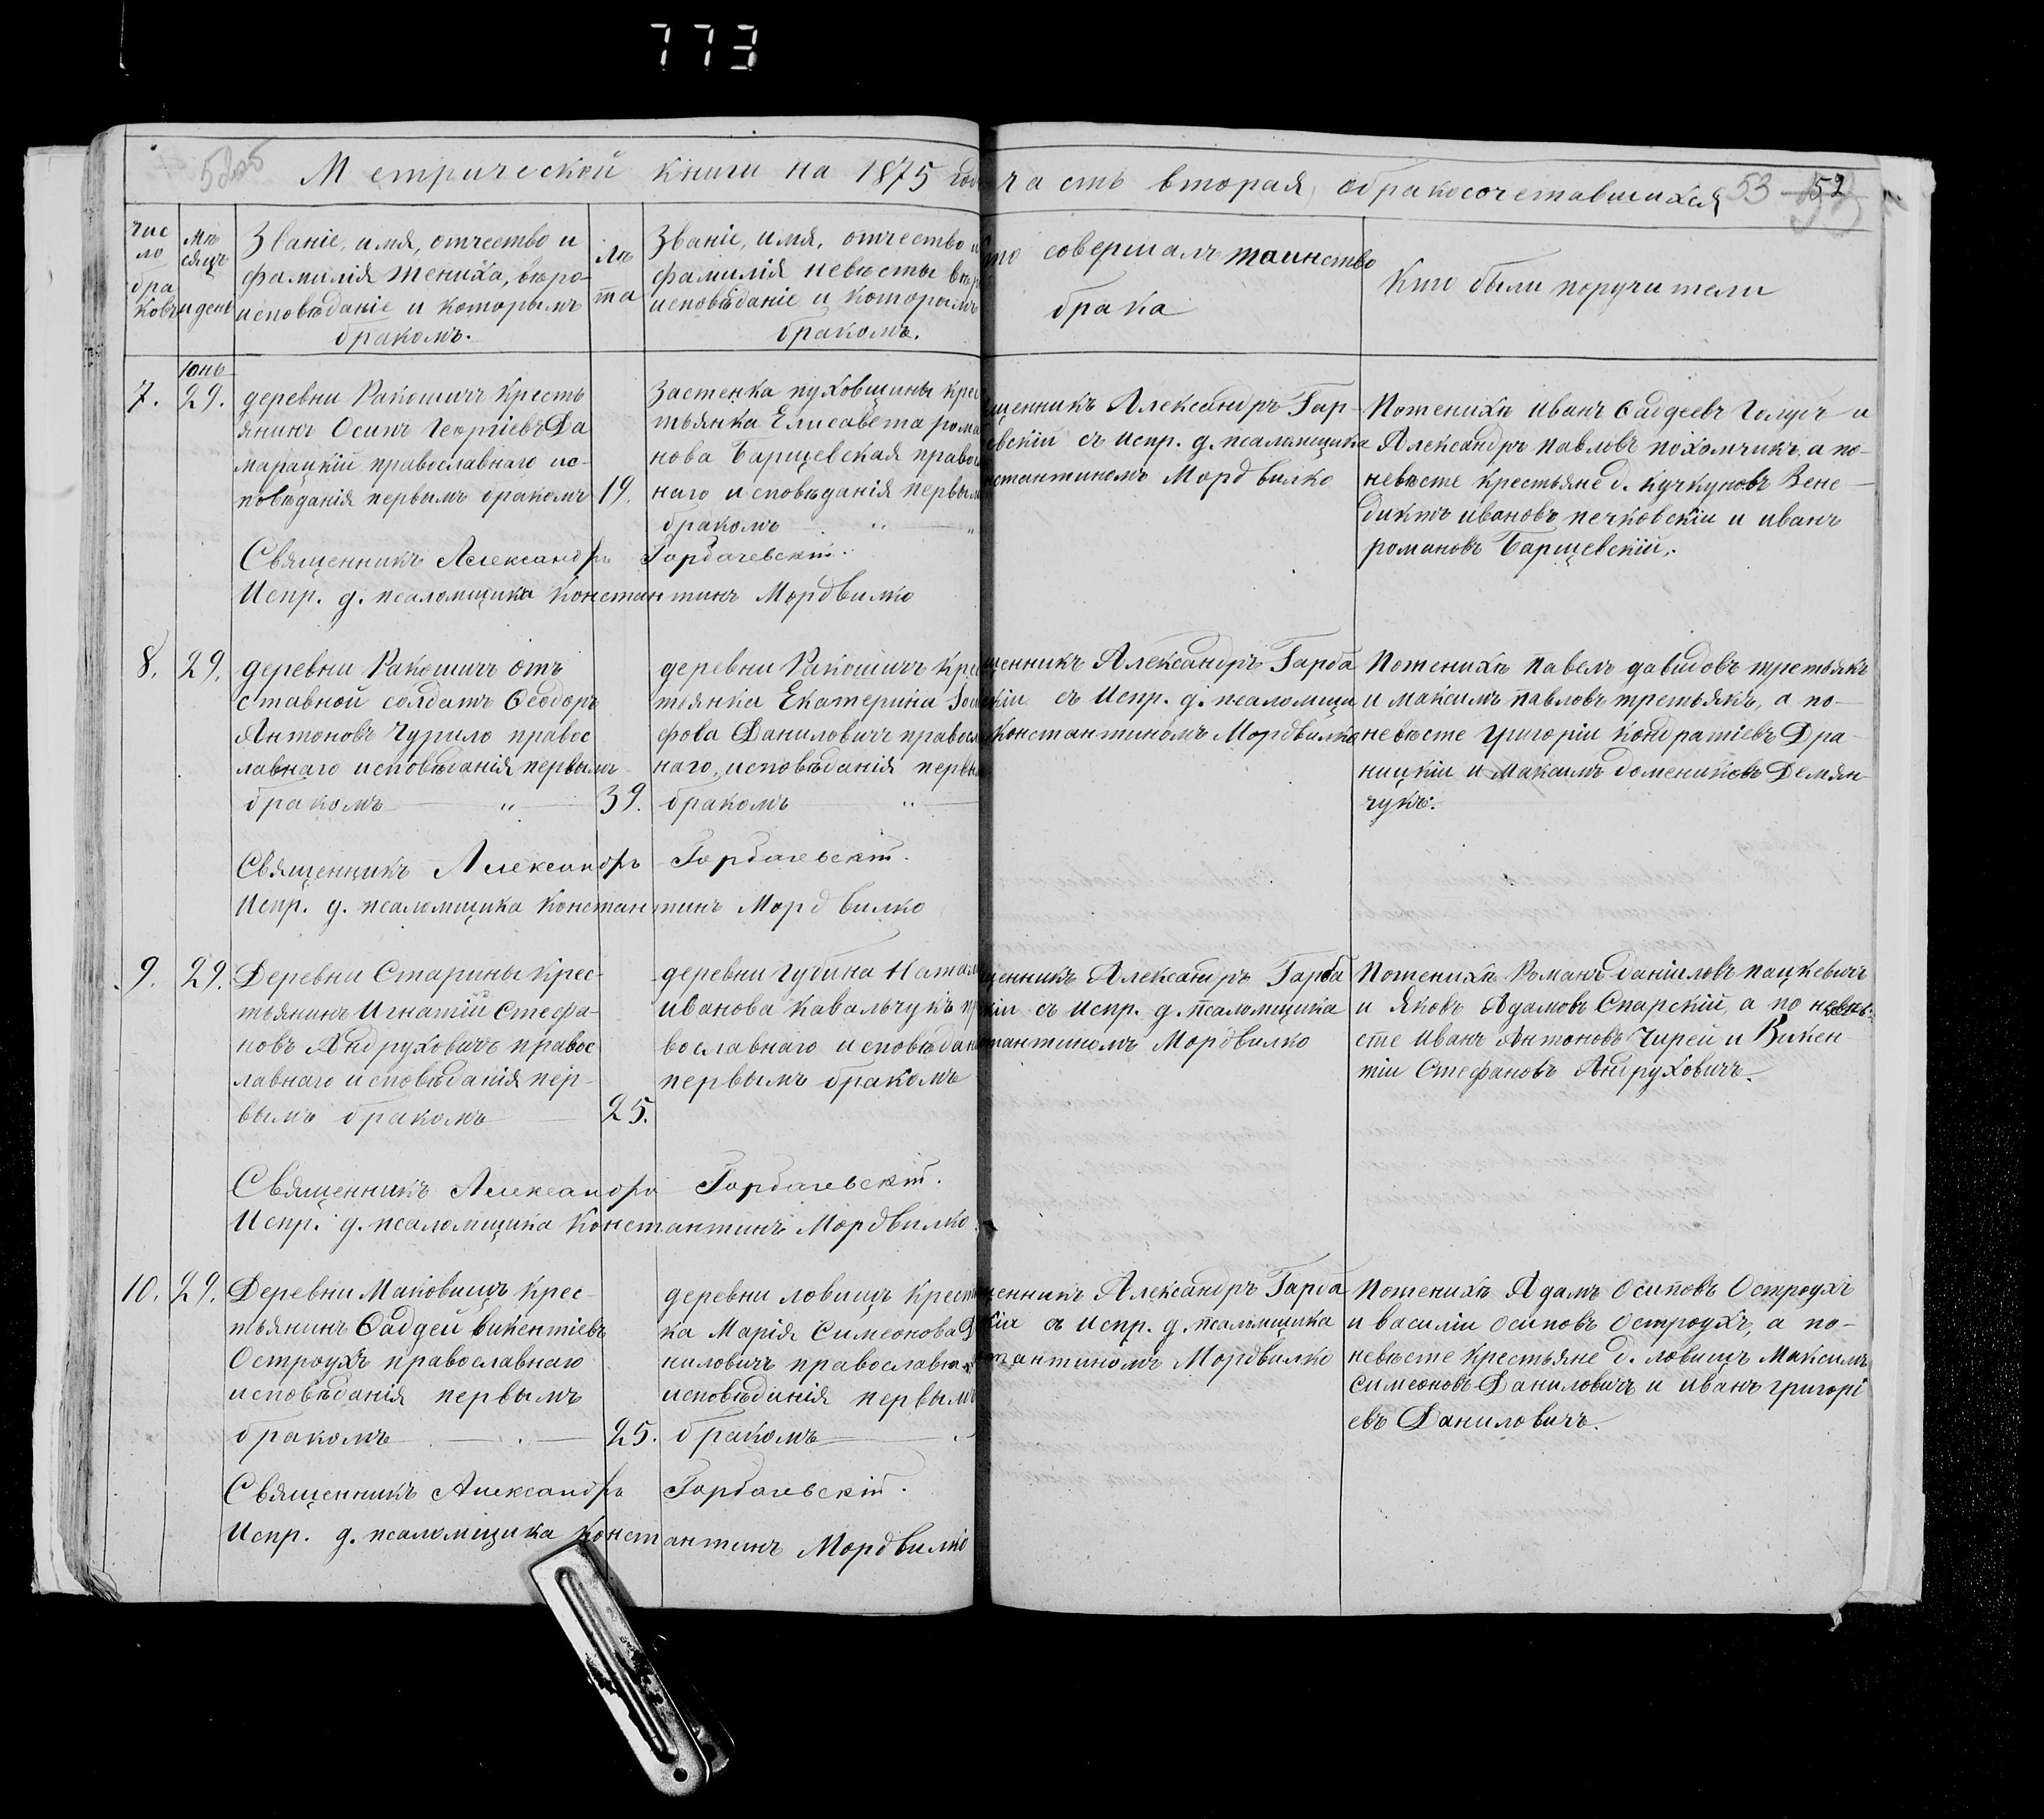 773
52об
Метрической книги на 1875 год
часть вторая, обракосочетавшихся
53
52
чис
ло
бра
ковъ
мѣ
сяцъ
и день
Званіе, имя, отчество и
фамилія жениха, вѣро-
исповѣданіе и которымъ
бракомъ.
лѣ
та
Званіе, имя, отчество и
фамилія невѣсты вѣр
исповѣданіе и которымъ
бракомъ.
то совершалъ таинство
брака
Кто были поручители
Юнь
7.
29.
деревни Ракошичъ кресть
янинъ Осипъ Георгіевъ Да
марацкій православнаго ис-
повѣданія первымъ бракомъ
19.
Застенка пуховщины крес
тьянка Елисавета рома
нова Барщевская правос
наго исповѣданія первым
бракомъ
щенникъ Александръ Гар-
евскій съ испр. д. псаломщика
нстантиномъ Мордвилко
Поженихѣ иванъ Фаддеевъ Голубъ и
Александръ павловъ похомчикъ, а по-
невѣсте крестьяне д. Кучкуновъ Вене-
диктъ ивановъ печковскій и иванъ
романовъ Барщевскій.
Священникъ Александръ Горбачевскій.
Испр. д. псаломщика Константинъ Мордвилко
8.
29.
деревни Ракошичъ от
ставной солдатъ Феодоръ
Антоновъ Чурило правос
лавнаго исповѣданія первымъ
бракомъ
39.
деревни Ракошичъ кре
тьянка Екатерина Іос
фова Даниловичъ правосл
наго исповѣданія первы
бракомъ
щенникъ Александръ Гарба
скій съ испр. д. псаломщи
Константиномъ Мордвилко
Поженихѣ павелъ давидовъ третьякъ
и максимъ павловъ третьякъ, а по-
невѣсте григорій кондратіевъ Дра-
ницкій и максимъ домениковъ Демян-
чукъ.
Священникъ Александръ Горбачевскій.
Испр. д. псаломщика Константинъ Мордвилко
9.
29.
Деревни Старины крес-
тьянинъ Игнатій Стефа-
новъ Андруховичъ правос
лавнаго исповѣданія пер-
вымъ бракомъ
25.
деревни губина Натал
иванова Кавальчукъ пр
вославнаго исповѣдан
первымъ бракомъ
щенникъ Александръ Гарба
кій съ испр. д. псаломщика
тантиномъ Мордвилко
Поженихѣ Романъ даніиловъ пацкевичъ
и яковъ Адамовъ Спарскій, а по невѣ-
сте иванъ Антоновъ Чирей и Викен-
тій Стефановъ Андруховичъ.
Священникъ Александръ Горбачевскій.
Испр. д. псаломщика Константинъ Мордвилко
10.
29.
Деревни Маковищъ крес-
тьянинъ Фаддей викентіевъ
Остроухъ православнаго
исповѣданія первымъ
бракомъ
25.
деревни ловищъ крест
ка Марія Симеонова Д
ниловичъ православна
исповѣданія первымъ
бракомъ
щенникъ Александръ Гарба
кій съ испр. д. псаломщика
тантиномъ Мордвилко
Поженихѣ Адамъ Осиповъ Остроухъ
и василій осиповъ Остроухъ, а по-
невѣсте крестьяне д. ловищъ Максимъ
симеоновъ Даниловичъ и иванъ григорі
евъ Даниловичъ.
Священникъ Александръ Горбачевскій.
Испр. д. псаломщика Константинъ Мордвилко